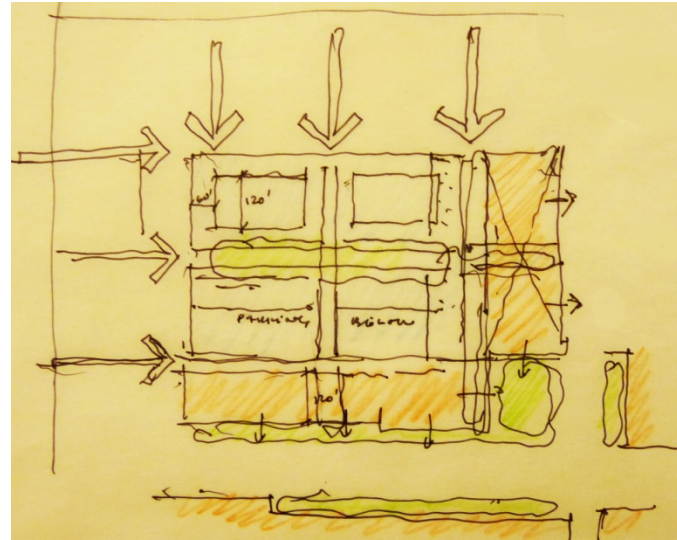 60' 120'
PARKING BELOW
120'